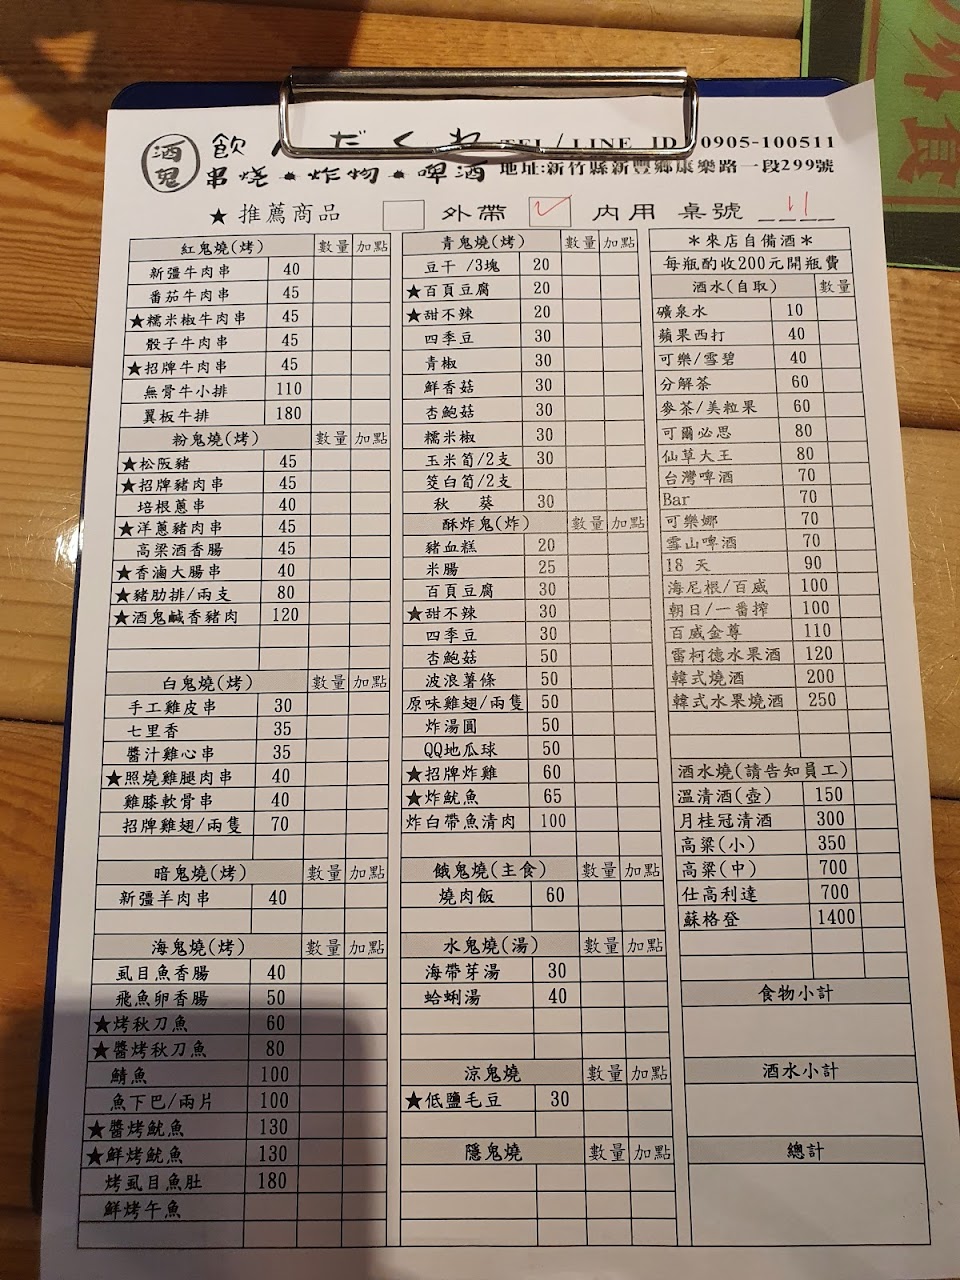 酒鬼
飲んだくれ TEL/LINE ID 0905-100511
串燒★炸物★啤酒 地址:新竹縣新豐鄉康樂路一段299號
★推薦商品 外帶 ✓ 內用 桌號 11
紅鬼燒(烤) 數量 加點
新疆牛肉串 40
番茄牛肉串 45
★糯米椒牛肉串 45
骰子牛肉串 45
★招牌牛肉串 45
無骨牛小排 110
翼板牛排 180
粉鬼燒(烤) 數量 加點
★松阪豬 45
★招牌豬肉串 45
培根蔥串 40
★洋蔥豬肉串 45
高梁酒香腸 45
★香滷大腸串 40
★豬肋排/兩支 80
★酒鬼鹹香豬肉 120
白鬼燒(烤) 數量 加點
手工雞皮串 30
七里香 35
醬汁雞心串 35
★照燒雞腿肉串 40
雞膝軟骨串 40
招牌雞翅/兩隻 70
暗鬼燒(烤) 數量 加點
新疆羊肉串 40
海鬼燒(烤) 數量 加點
虱目魚香腸 40
飛魚卵香腸 50
★烤秋刀魚 60
★醬烤秋刀魚 80
鯖魚 100
魚下巴/兩片 100
★醬烤魷魚 130
★鮮烤魷魚 130
烤虱目魚肚 180
鮮烤午魚
青鬼燒(烤) 數量 加點
豆干 /3塊 20
★百頁豆腐 20
★甜不辣 20
四季豆 30
青椒 30
鮮香菇 30
杏鮑菇 30
糯米椒 30
玉米筍/2支 30
筊白筍/2支
秋 葵 30
酥炸鬼(炸) 數量 加點
豬血糕 20
米腸 25
百頁豆腐 30
★甜不辣 30
四季豆 30
杏鮑菇 50
波浪薯條 50
原味雞翅/兩隻 50
炸湯圓 50
QQ地瓜球 50
★招牌炸雞 60
★炸魷魚 65
炸白帶魚清肉 100
餓鬼燒(主食) 數量 加點
燒肉飯 60
水鬼燒(湯) 數量 加點
海帶芽湯 30
蛤蜊湯 40
涼鬼燒 數量 加點
★低鹽毛豆 30
隱鬼燒 數量 加點
*來店自備酒*
每瓶酌收200元開瓶費
酒水(自取) 數量
礦泉水 10
蘋果西打 40
可樂/雪碧 40
分解茶 60
麥茶/美粒果 60
可爾必思 80
仙草大王 80
台灣啤酒 70
Bar 70
可樂娜 70
雪山啤酒 70
18 天 90
海尼根/百威 100
朝日/一番搾 100
百威金尊 110
雷柯德水果酒 120
韓式燒酒 200
韓式水果燒酒 250
酒水燒(請告知員工)
溫清酒(壺) 150
月桂冠清酒 300
高粱(小) 350
高粱(中) 700
仕高利達 700
蘇格登 1400
食物小計
酒水小計
總計